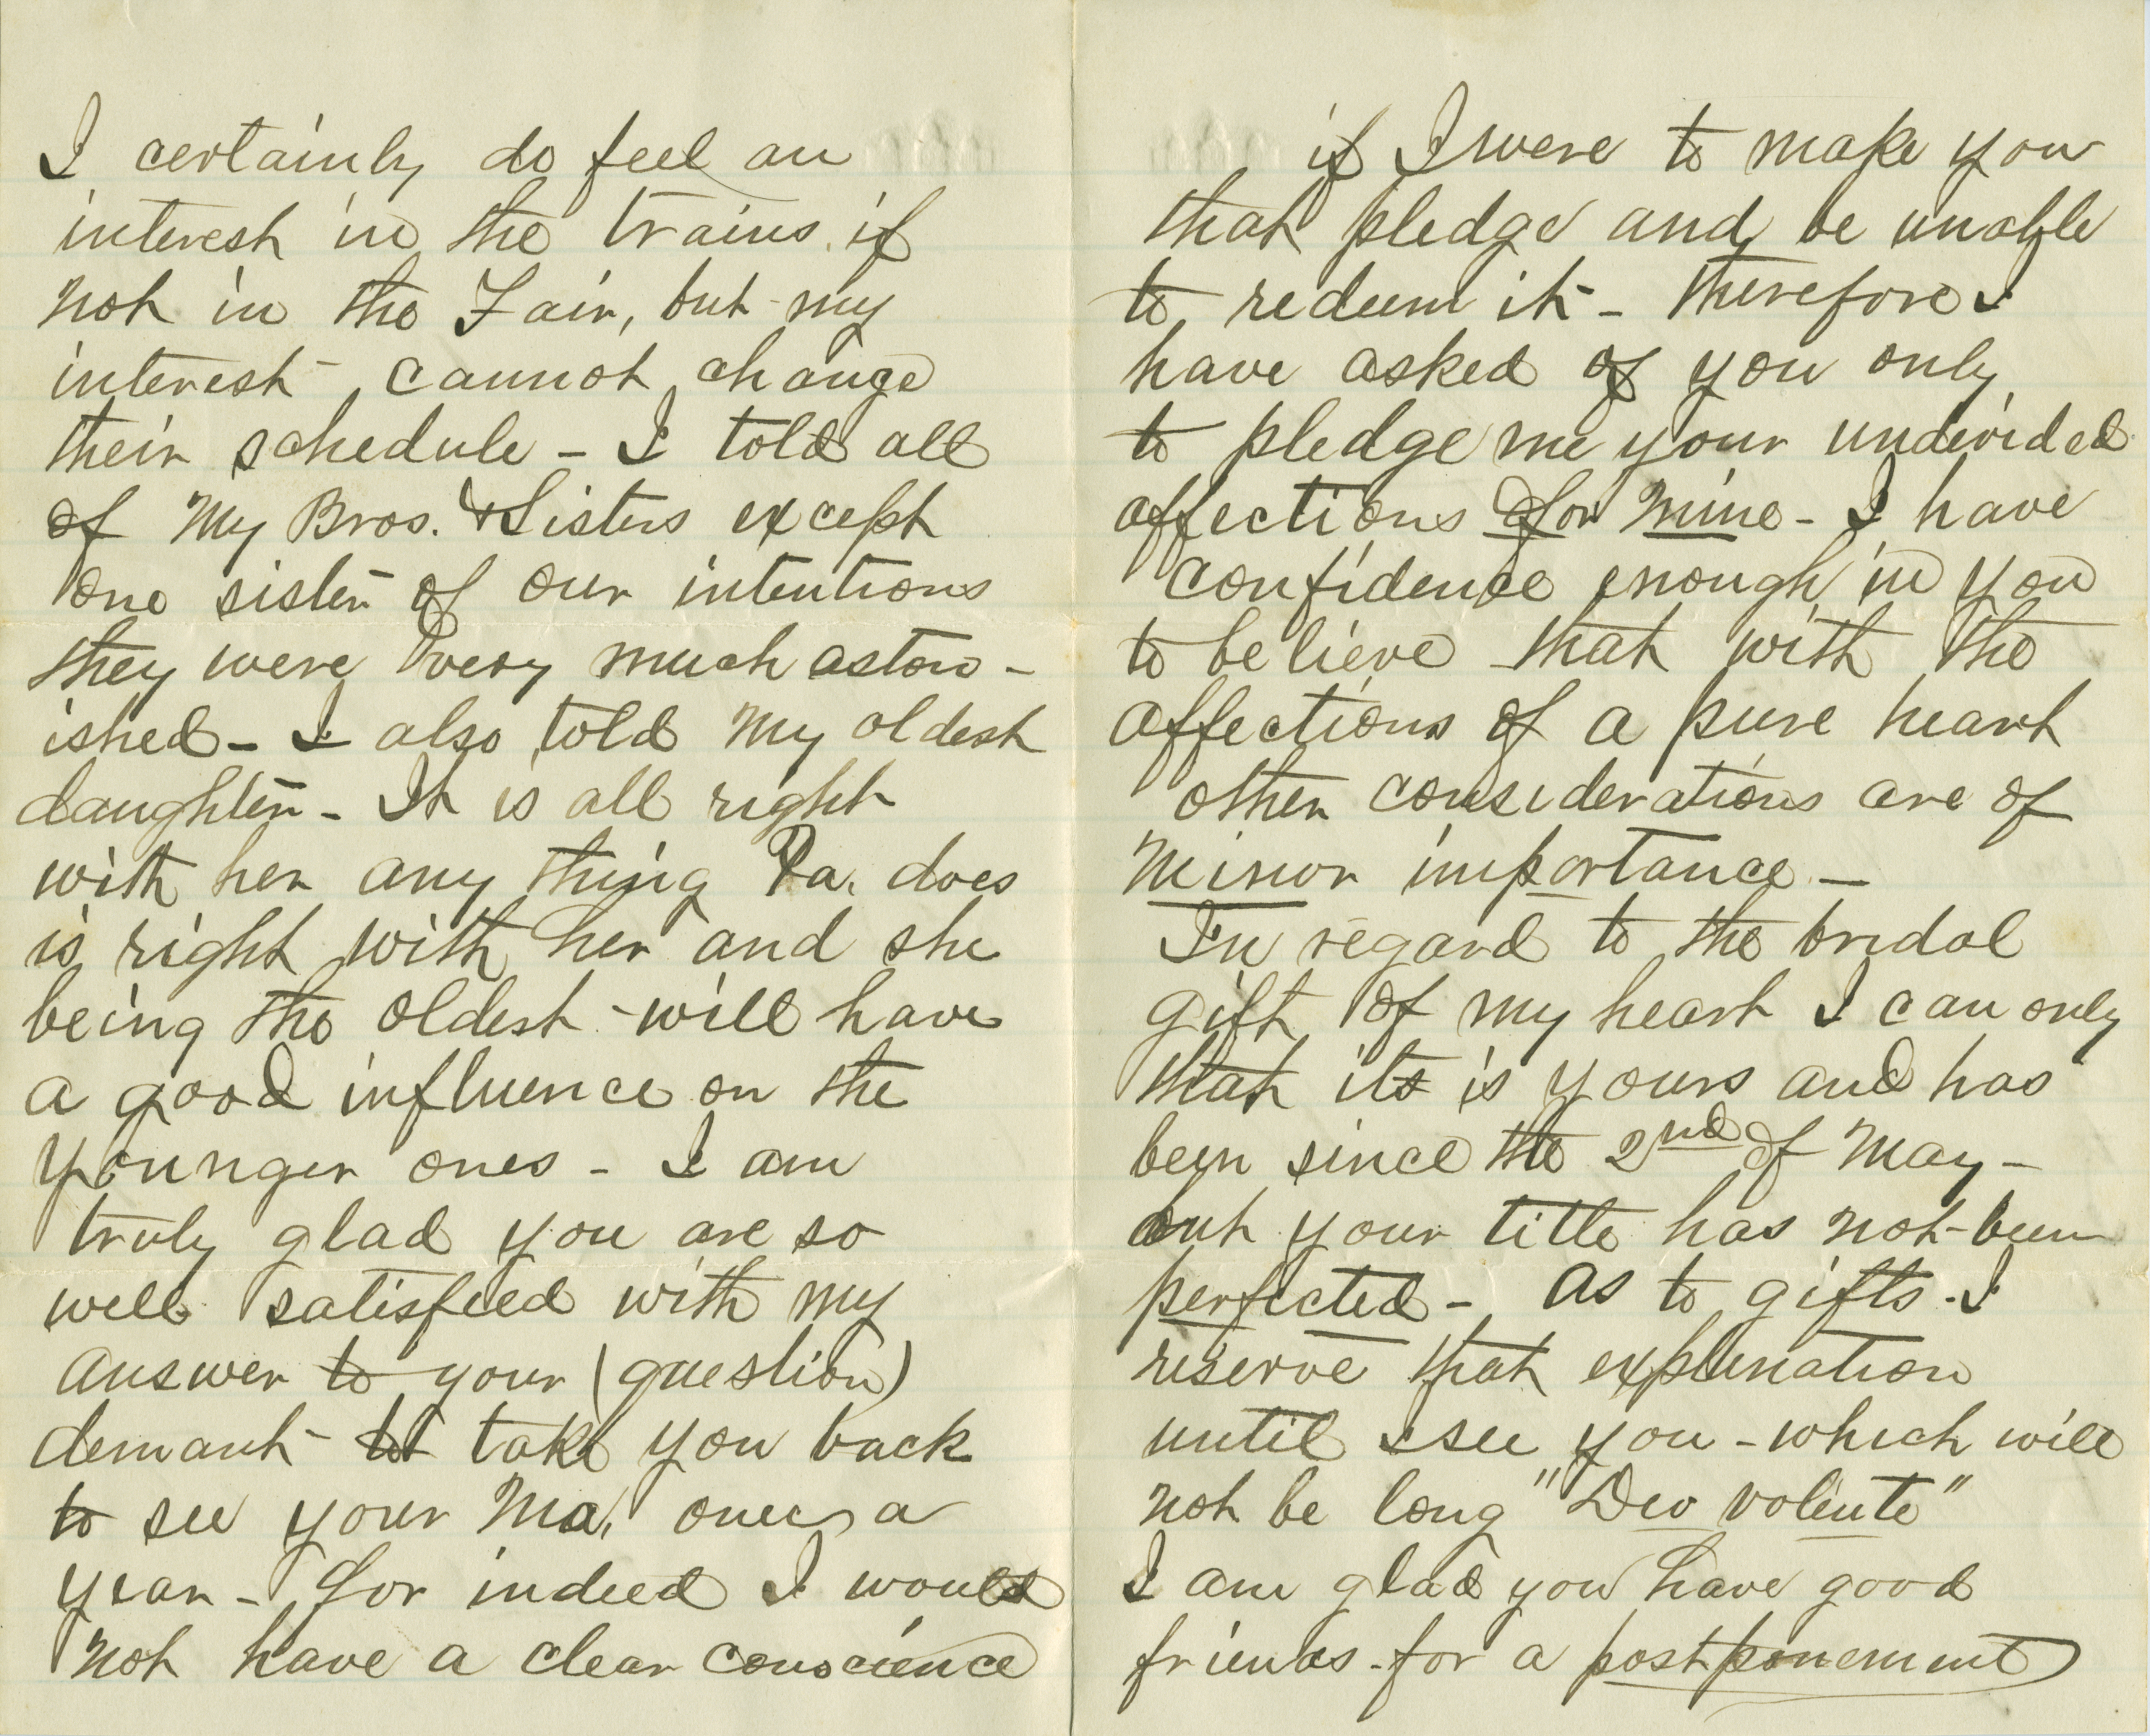 I certainly do feel an
interest in the trains if
not in the Fair, but my
interest cannot change
their schedule - I told all
of my Bros. & Sisters except
one sister of our intentions
they were very much aston-
ished - I also told my oldest
daughter - It is all right
with her any thing Pa. does
is right with her and she
being the oldest - will have
a good influence on the
younger ones - I am
truly glad you are so
well satisfied with my
answer to your (question)
demant - to take you back
to see your Ma, once a
year - for indeed I would
not have a clear conscience
if I were to make you
that pledge and be unable
to redeem it - therefore I
have asked of you only
to pledge me your undivided
affections for mine - I have
confidence enough in you
to believe that with the
affections of a pure heart
other considerations are of
minor importance -
In regard to the bridal
gift of my heart I can only
that its is yours and has
been since the 2nd of May -
but your title has not been
perfected - as to gifts - I
reserve that explination
until I see you - which will
not be long "Deo volente"
I am glad you have good
friends - for a postponement